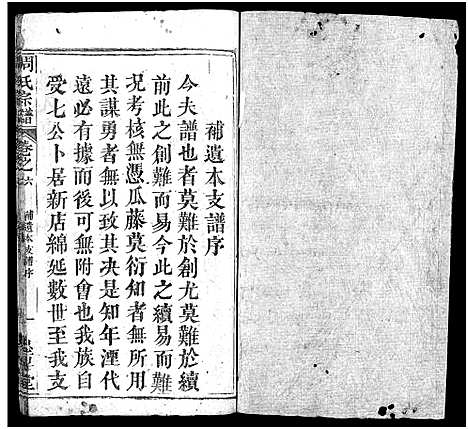 補遺本支譜序
今夫譜也者莫難於創尤莫難於續
前此之創難而易今此之續易而難
況考核無憑瓜藤莫衍知者無所用
其謀勇者無以致其決是知年湮代
遠必有據而後可無附會也我族自
受七公卜居新店綿延數世至我支
周氏宗譜
卷之六
補遺本支譜序
一
堂